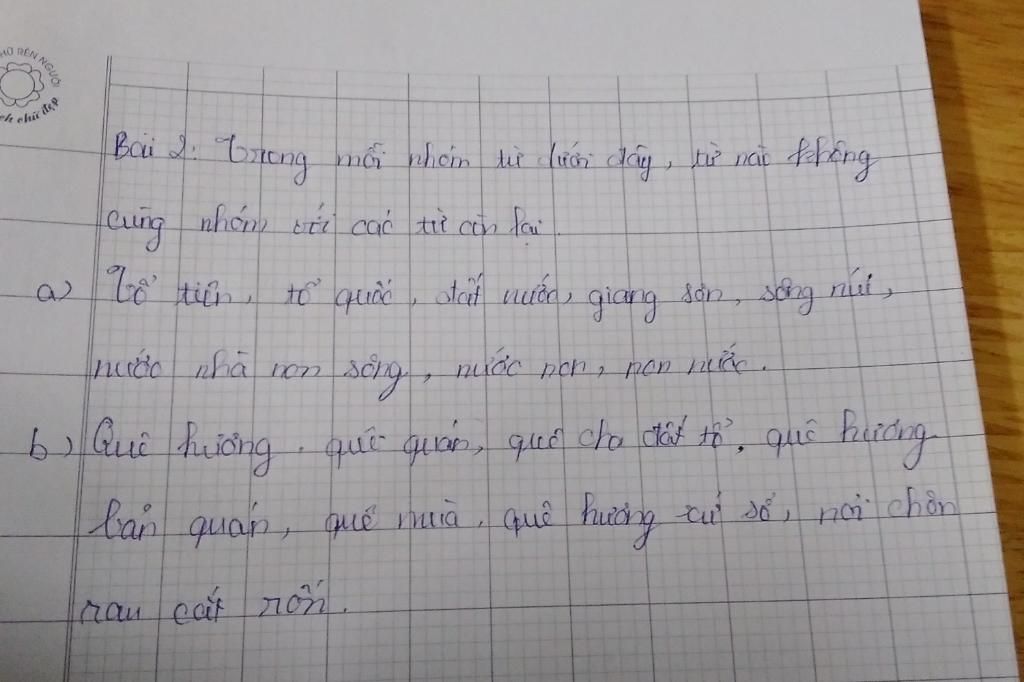 HŨ RÈN NGƯỜI
ch chữ đẹp
Bài 2: Trong mỗi nhóm từ dưới đây, từ nào không
cùng nhóm với các từ còn lại.
a) Tổ tiên, tổ quốc, đất nước, giang sơn, sông núi,
nước nhà non sông, nước non, non nước.
b) Quê hương, quê quán, quê cha đất tổ, quê hương
bản quán, quê mùa, quê hương xứ sở, nơi chôn
rau cắt rốn.